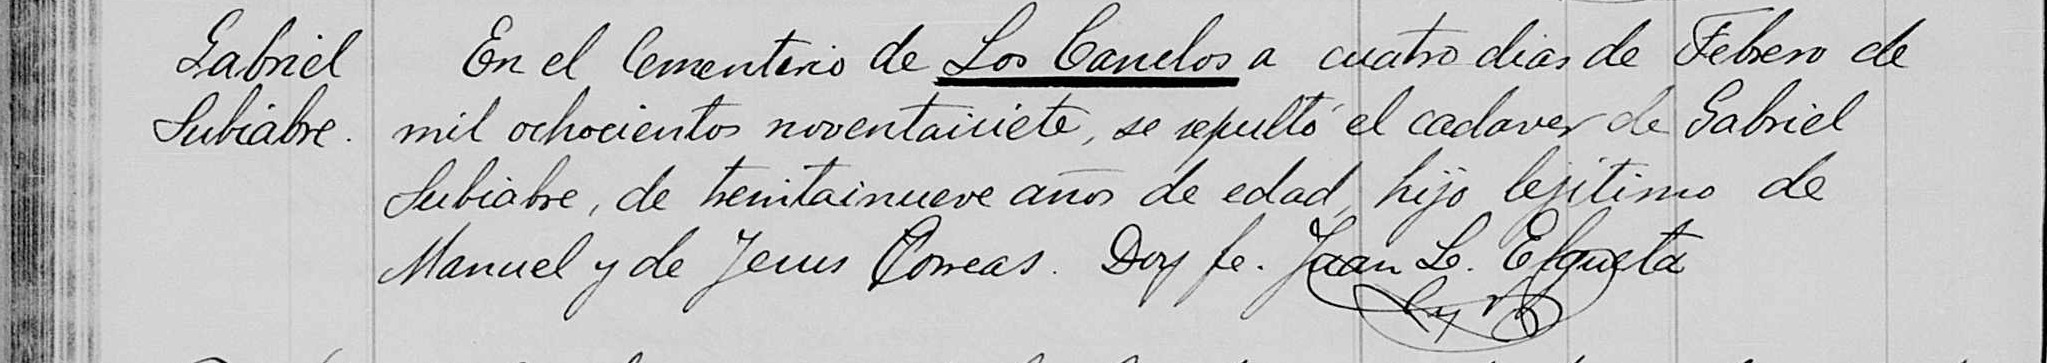 Gabriel
Subiabre.
En el Cementerio de Los Canelos a cuatro dias de Febrero de
mil ochocientos noventaisiete, se sepultó el cadaver de Gabriel
Subiabre, de treintainueve años de edad, hijo lejitimo de
Manuel y de Jesus Correas. Doy fe. Juan L. Elgueta